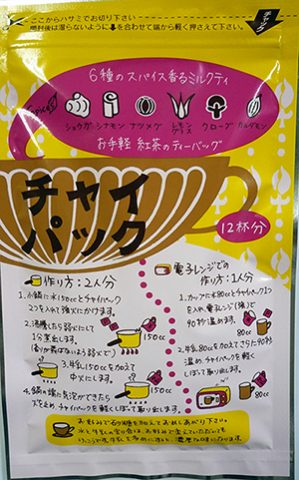 ここからハサミでお切り下さい
開封後は湿らないように を合わせて端から軽く押さえて下さい。
チャック
6種のスパイス香るミルクティ
Spices
ショウガ シナモン ナツメグ レモングラス クローブ カルダモン
お手軽 紅茶のティーバッグ
チャイ
パック
12杯分
作り方:2人分
1.小鍋に水150ccとチャイパック
2つを入れて強火にかけます。
2.沸騰したら弱火にして
1分煮出します。
(香りが飛ばないよう弱火で)
150cc
3.牛乳150ccを加えて
中火にします。
150cc
4.鍋の端に気泡がでてきたら
火を止め、チャイパックを軽くしぼって取り出します。
電子レンジでの
作り方:1人分
1.カップに水80ccとチャイパック1つ
を入れ、電子レンジ(強)で
90秒温めます。
80cc
2.牛乳80ccを加えてさらに90秒
温め、チャイパックを軽く
しぼって取り出します。
80cc
お好みでお砂糖を加えてお召しあがり下さい。
水と牛乳の割合は、お好みで変えていただいても
けっこうです。牛乳を多めにすると、濃厚な味になります。